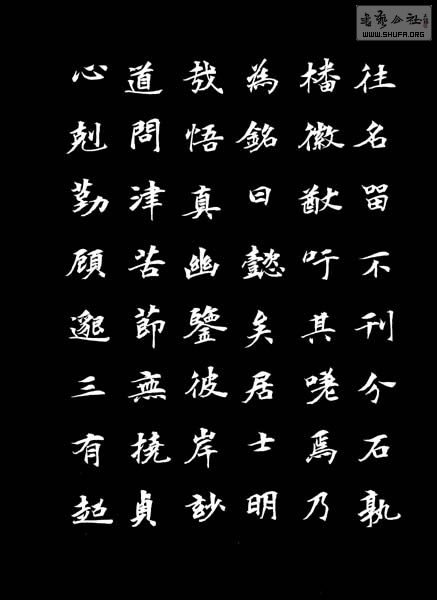 往名留不刊介石孰
播徽猷吁其嗟焉乃
為銘曰懿矣居士明
哉悟真幽鑒彼岸玅
道問津苦節無撓貞
心剋勤顧邈三有超
書藝公社
WWW.SHUFA.ORG